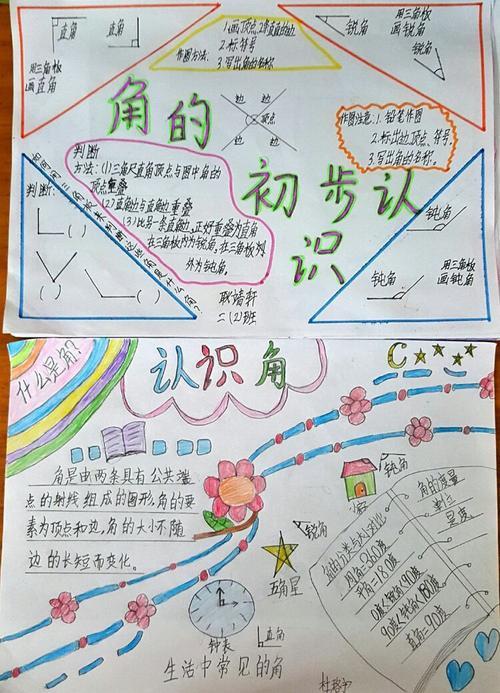 直角
直角
用三角板
画直角
1.画顶点,2条直直的边
作图方法:
2.标符号
3.写出角的名称
锐角
用三角板
画锐角
锐角
角的
初步认
识
边
边
顶点
边
边
作图注意:1.铅笔作图
2.标出边、顶点、符号。
3.写出角的名称。
判断
方法:(1)三角尺直角顶点与图中角的
顶点重叠
(2)直角边与直角边重叠
(3)比另一条直角边,正好重叠为直角
在三角板内为锐角。在三角板
外为钝角。
判断:
( )
( )
( )
二(2)班
钝角
钝角
用三角板
画钝角
什么是角?
认识角
角是由两条具有公共端
点的射线组成的图形,角的要
素为顶点和边,角的大小不随
边的长短而变化。
钝角
锐角
五角星
钟表
直角
生活中常见的角
角的度量
单位
是度
周角=360度
平角=180度
0度<锐角<90度
90度<钝角<180度
直角=90度